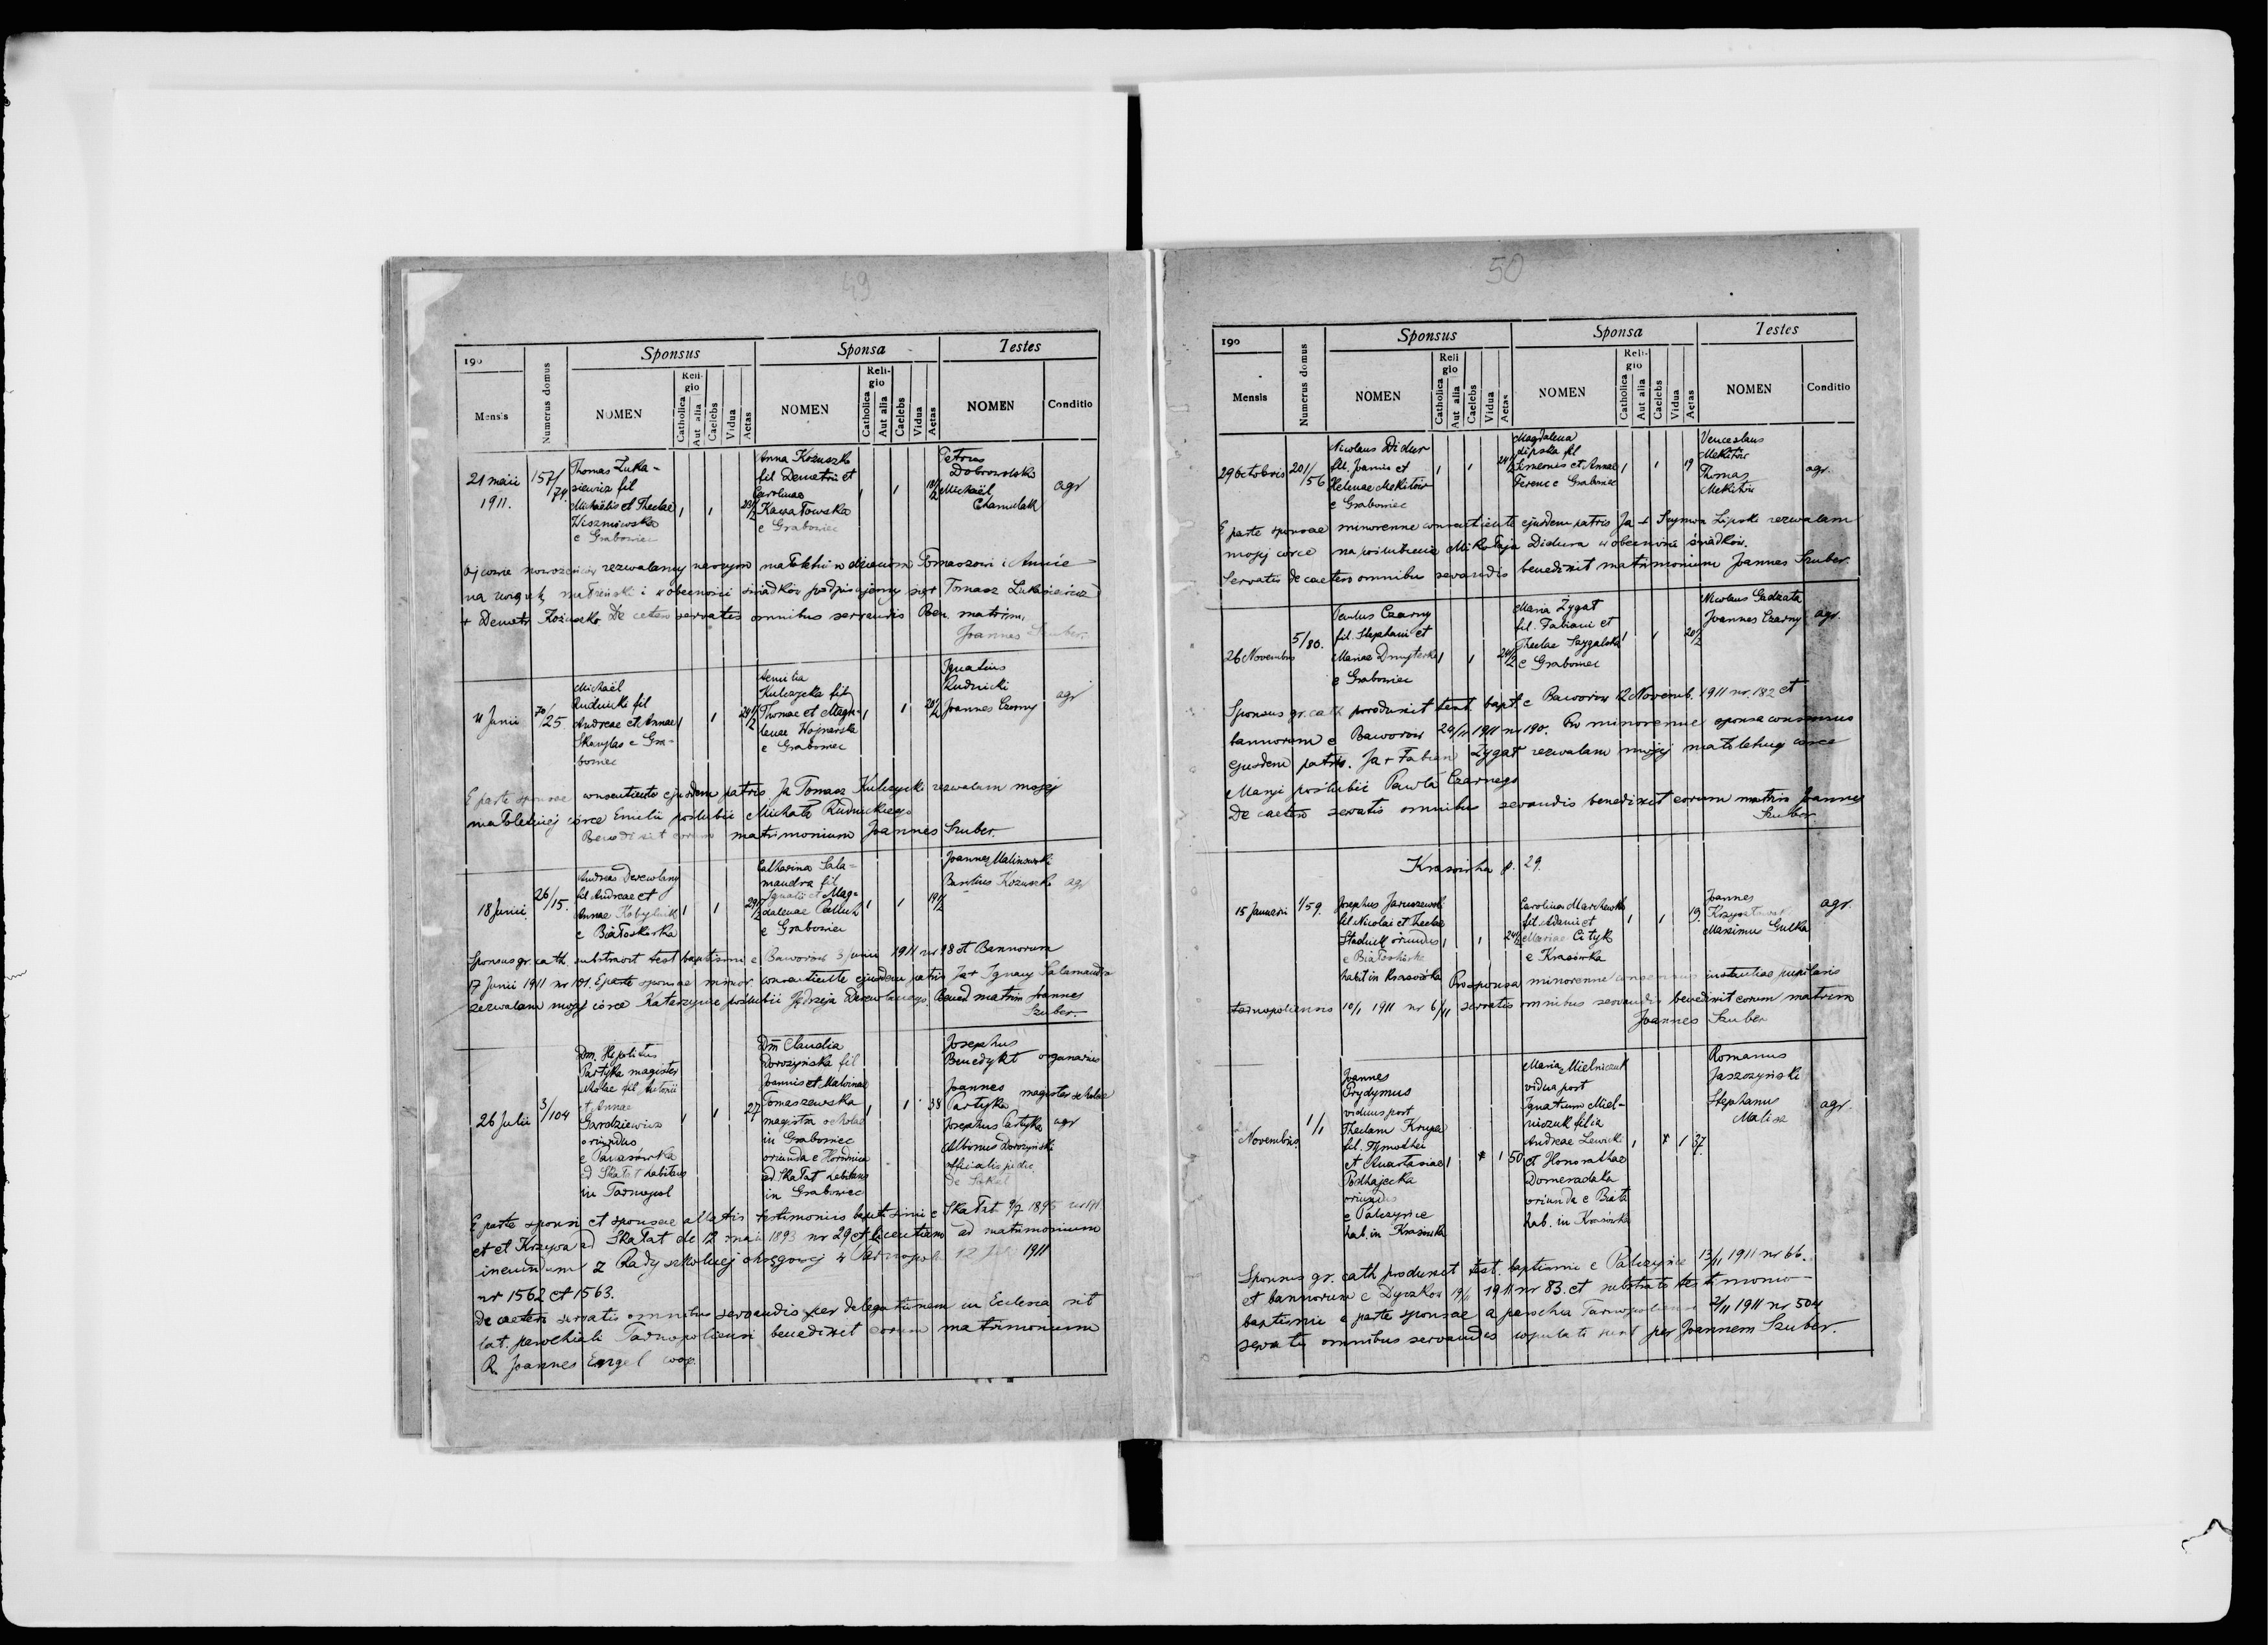 49
190
Mensis
Numerus domus
Sponsus
NOMEN
Reli-
gio
Catholica
Aut alia
Caelebs
Vidua
Aetas
Sponsa
NOMEN
Reli-
gio
Catholica
Aut alia
Caelebs
Vidua
Aetas
Testes
NOMEN
Conditio
21 maii
1911.
157/
74
Thomas Łuka-
siewicz fil
Michaëlis et Theclae
Wiszniowska
e Grabowiec
1
1
23 1/2
Anna Kożuszko
fil Demetrii et
Carolinae
Kawałowska
e Grabowiec
1
1
18 1/2
Petrus
Dobrowolski
Michaël
Chamulak
agr
Ojcowie nowożeńców zezwalamy naszym małoletnim dzieciom Tomaszowi i Annie
na związek małżeński i w obecności świadków podpisujemy się + Tomasz Łukasiewicz
+ Demetr Kożuszko. De cetero servatis omnibus servandis Ben. matrim.
Joannes Szuber.
4 Junii
70/25
Michaël
Rudnicki fil
Andreae et Annae
e Gra-
bowiec
1
1
24 1/2
Aemilia
Kulczycka fil
Thomae et Magda-
lenae Wojnarska
e Grabowiec
1
1
20 1/2
Ignatius
Rudnicki
Joannes Czarny
agr
E parte sponsae consentiente ejusdem patris Ja Tomasz Kulczycki zezwalam mojej
małoletniej córce Emilii poślubić Michała Rudnickiego
Benedixit eorum matrimonium Joannes Szuber.
18 Junii
26/15.
Andreas Derewlany
fil Andreae et
Annae Kobylnik
e Białoskórka
1
1
29 1/2
Catharina Sala-
mandra fil
Ignatii et Mag-
dalenae
e Grabowiec
1
1
19 1/2
Joannes Malinowski
Basilius Kożuszko
agr
Sponsus gr. cath. substravit test baptismi e Baworów 3 Junii 1911 nr 98 et Bannorum
17 Junii 1911 nr 101. E parte sponsae minor. consentiente ejusdem patris Ja + Ignacy Salamandra
zezwalam mojej córce Katarzynie poślubić Jędrzeja Derewlanego. Bened matrim Joannes
Szuber.
26 Julii
3/104
Dm. Hipolitus
Partyka magister
scholae fil Antonii
et Annae
Gardziewicz
oriundus
e Panasówka
ad Skałat habitans
in Tarnopol
1
1
27
Dm Claudia
Dorożyńska fil
Joannis et Malvinae
Tomaszewska
magistra scholae
in Grabowiec
oriunda e
ad Skałat habitans
in Grabowiec
1
1
38
Josephus
Benedykt organarius
Joannes
Partyka magister scholae
Josephus Partyka agr
Albinus Dorożyński
officialis
de Sokal
E parte sponsi et sponsae allatis testimoniis baptismi e Skałat 9/7 1895
et et Krzywa ad Skałat de 12 maii 1893 nr 29 et licentiam ad matrimonium
ineundum z Rady szkolnej okręgowej w Tarnopolu 12 1911
nr 1562 et 1563.
De caetero servatis omnibus servandis per delegationem in Ecclesia rit
lat. parochiali Tarnopoliensi benedixit eorum matrimonium
R. Joannes Engel coop.
50
190
Mensis
Numerus domus
Sponsus
NOMEN
Reli
gio
Catholica
Aut alia
Caelebs
Vidua
Aetas
Sponsa
NOMEN
Reli-
gio
Catholica
Aut alia
Caelebs
Vidua
Aetas
Testes
NOMEN
Conditio
29 Octobris
201/56
Nicolaus Didur
fil. Joannis et
Helenae Mekitów
e Grabowiec
1
1
24 1/2
Magdalena
Lipska fil
Simeonis et Annae
Ferenc e Grabowiec
1
1
19
Venceslaus
Mekitów
Thomas
Mekitów
agr.
E parte sponsae minorenne consentiente ejusdem patris Ja + Szymon Lipski zezwalam
mojej córce na poślubienie Mikołaja Didura w obecności świadków.
Servatis de caetero omnibus servandis benedixit matrimonium Joannes Szuber.
26 Novembris
5/80.
Paulus Czarny
fil. Stephani et
Mariae Dmyterko
e Grabowiec
1
1
24 1/2
Maria Żygat
fil. Fabiani et
Theclae
e Grabowiec
1
1
20 1/2
Nicolaus Gadzała
Joannes Czarny
agr.
Sponsus gr. cath produxit test. bapt. e Baworów 12 Novemb. 1911 nr. 182 et
bannorum e Baworów 24/11 1911 nr 190. Pro minorenne sponsa consensus
ejusdem patris. Ja + Fabian Żygat zezwalam mojej małoletniej córce
Maryi poślubić Pawła Czarnego
De caetero servatis omnibus servandis benedixit eorum matrim Joannes
Szuber
Krasówka p. 29.
15 Januarii
1/59.
Josephus Jaruszewski
fil Nicolai et Theclae
Stadnik oriundus
e Białoskórka
habit in Krasówka
1
1
24 1/2
Carolina Marchewka
fil. Adami et
Mariae Cityk
e Krasówka
1
1
19.
Joannes
Maximus Gulka
agr.
Pro sponsa minorenne consensus instantiae pupilaris
tarnopoliensis 10/1 1911 nr 6/11 servatis omnibus servandis benedixit eorum matrim
Joannes Szuber
Novembris
1/1
Joannes
Prydymus
viduus post
Theclam Krupa
fil. Tymothei
et Anastasiae
Podhajecka
oriundus
e Palczyńce
hab. in Krasówka
1
1
50
Maria Mielniczuk
vidua post
Ignatium Miel-
niczuk filia
Andreae Lewicki
et Honorathae
Domeradzka
oriunda e Biała
hab. in Krasówka
1
1
37.
Romanus
Jaszczyński
Stephanus
Malisz
agr.
Sponsus gr. cath produxit test. baptismi e Palczyńce 13/11 1911 nr 66.
et bannorum e Dyczków 19/11 1911 nr 83. et substrato testimonio
baptismi e parte sponsae a parochia Tarnopoliensi 2/11 1911 nr 504
servatis omnibus servandis copulati sunt per Joannem Szuber.